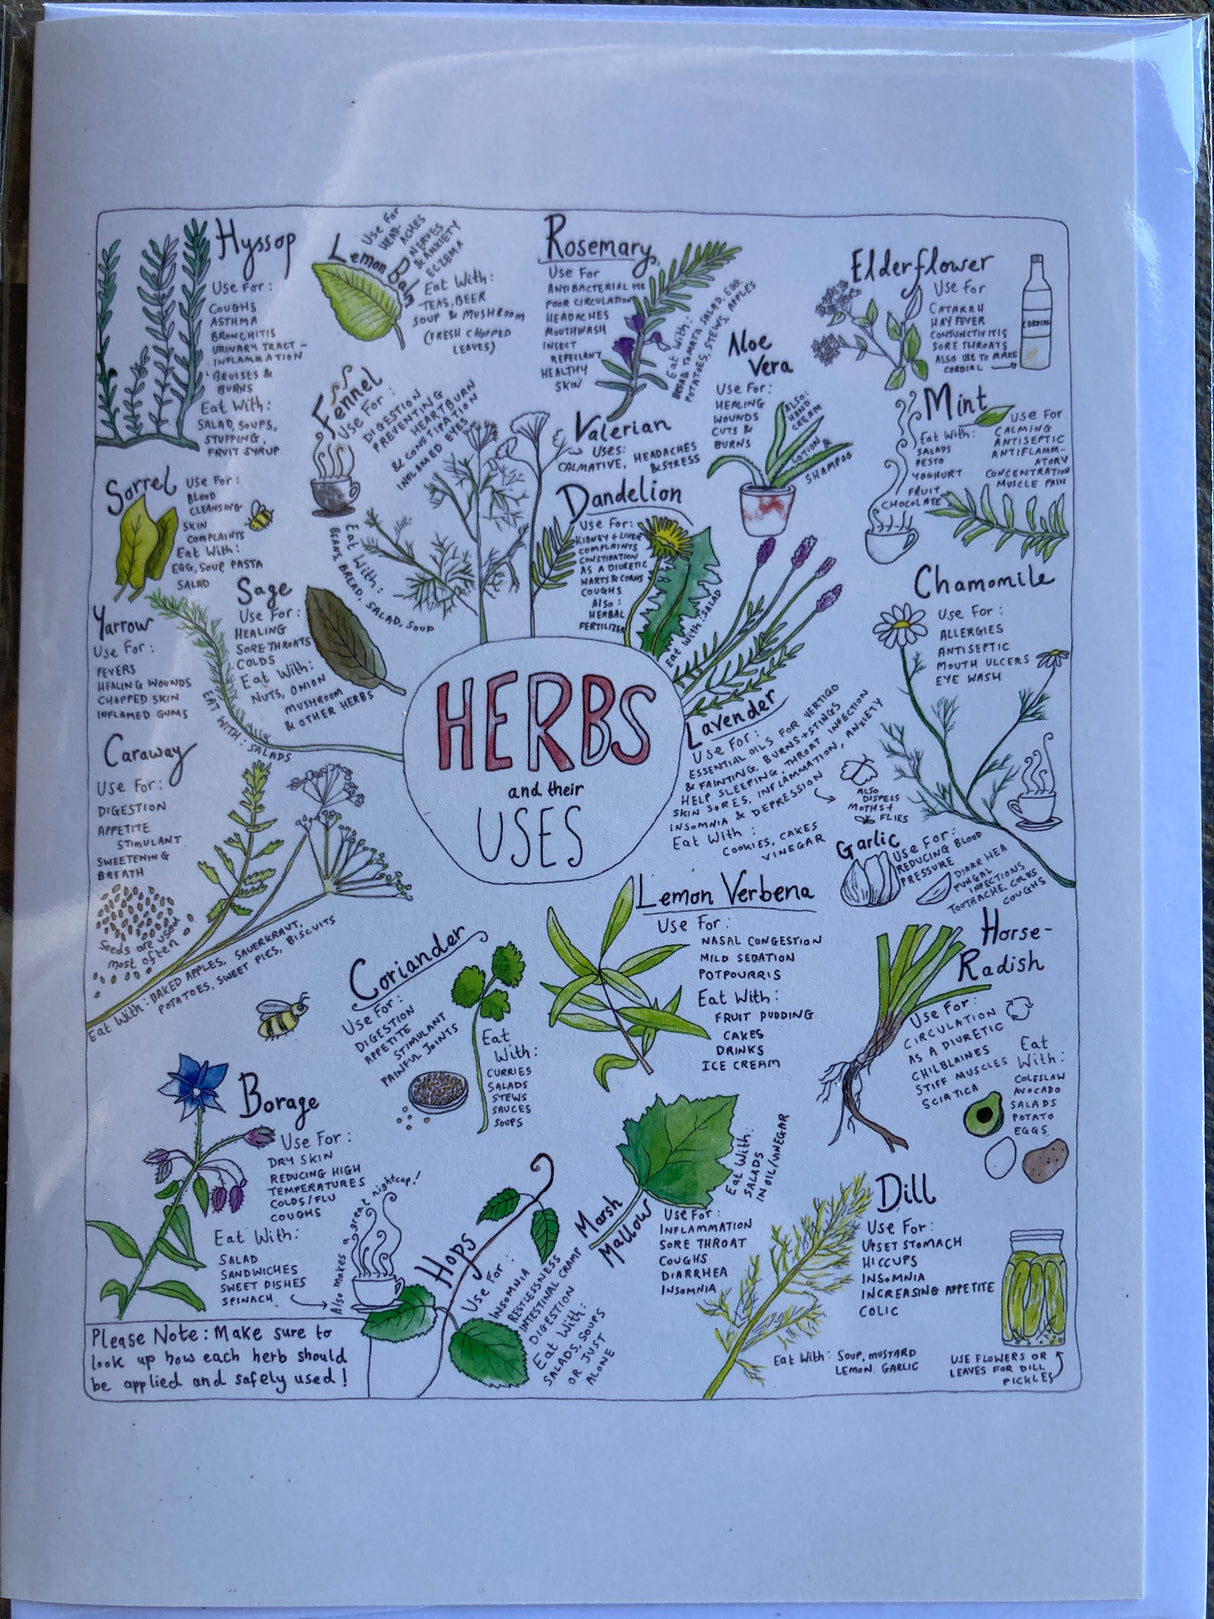 Hyssop
Use For:
COUGHS
ASTHMA
BRONCHITIS
URINARY TRACT -
INFLAMMATION
BRUISES &
BURNS
Eat With:
SALAD, SOUPS,
STUFFING,
FRUIT SYRUP
Lemon Balm
Use For
HEAD-
ACHES
NERVES
& ANXIETY
ECZEMA
Eat With:
TEAS, BEER
SOUP & MUSHROOM
(FRESH CHOPPED
LEAVES)
Rosemary
Use For
ANTIBACTERIAL USE
POOR CIRCULATION
HEADACHES
MOUTHWASH
INSECT
REPELLANT
HEALTHY
SKIN
Eat With:
BREAD, TOMATO SALAD, EGG
POTATOES, STEWS, APPLES
Elderflower
Use For
CATARRH
HAY FEVER
CONJUNCTIVITIS
SORE THROATS
ALSO USE TO MAKE
CORDIAL
CORDIAL
Aloe
Vera
Use For:
HEALING
WOUNDS
CUTS &
BURNS
ALSO:
HAND
CREAM
LOTION &
SHAMPOO
Mint
Use For
CALMING
ANTISEPTIC
ANTIFLAMM-
ATORY
CONCENTRATION
MUSCLE PAIN
Eat With:
SALADS
PESTO
YOGHURT
FRUIT
CHOCOLATE
Fennel
Use For:
DIGESTION
PREVENTING
HEARTBURN
& CONSTIPATION
INFLAMED EYES
Eat With:
BEANS, BREAD, SALAD, SOUP
Valerian
Uses:
CALMATIVE, HEADACHES
& STRESS
Sorrel
Use For:
BLOOD
CLEANSING
SKIN
COMPLAINTS
Eat With:
EGG, SOUP PASTA
SALAD
Dandelion
Use For:
KIDNEY + LIVER
COMPLAINTS
CONSTIPATION
AS A DIURETIC
WARTS & CORNS
COUGHS
Also:
HERBAL
FERTILIZER
Eat With: SALAD
Sage
Use For:
HEALING
SORE THROATS
COLDS
Eat With:
NUTS, ONION
MUSHROOM
& OTHER HERBS
Yarrow
Use For:
FEVERS
HEALING WOUNDS
CHAPPED SKIN
INFLAMED GUMS
EAT WITH: SALADS
Chamomile
Use For:
ALLERGIES
ANTISEPTIC
MOUTH ULCERS
EYE WASH
HERBS
and their
USES
Lavender
Use For:
ESSENTIAL OILS FOR VERTIGO
& FAINTING, BURNS + STINGS
HELP SLEEPING, THROAT INFECTION
SKIN SORES, INFLAMMATION, ANXIETY
INSOMNIA & DEPRESSION
Eat With:
COOKIES, CAKES
VINEGAR
ALSO
DISPELS
MOTHS +
FLIES
Caraway
Use For:
DIGESTION
APPETITE
STIMULANT
SWEETENING
BREATH
Seeds are used
most often
Eat With: BAKED APPLES, SAUERKRAUT,
POTATOES, SWEET PIES, BISCUITS
Garlic
Use For:
REDUCING BLOOD
PRESSURE
DIARRHEA
FUNGAL
INFECTIONS
TOOTHACHE, COLDS
COUGHS
Lemon Verbena
Use For:
NASAL CONGESTION
MILD SEDATION
POTPOURRIS
Eat With:
FRUIT PUDDING
CAKES
DRINKS
ICE CREAM
Horse-
Radish
Use For:
CIRCULATION
AS A DIURETIC
CHILBLAINES
STIFF MUSCLES
SCIATICA
Eat
With:
COLESLAW
AVOCADO
SALADS
POTATO
EGGS
Coriander
Use For:
DIGESTION
APPETITE
STIMULANT
PAINFUL JOINTS
Eat
With:
CURRIES
SALADS
STEWS
SAUCES
SOUPS
Borage
Use For:
DRY SKIN
REDUCING HIGH
TEMPERATURES
COLDS/FLU
COUGHS
Eat With:
SALAD
SANDWICHES
SWEET DISHES
SPINACH
Also makes a great nightcap!
Hops
Use For:
INSOMNIA
RESTLESSNESS
INTESTINAL CRAMP
DIGESTION
Eat With:
SALADS, SOUPS
OR JUST
ALONE
Marsh
Mallow
Use For:
INFLAMMATION
SORE THROAT
COUGHS
DIARRHEA
INSOMNIA
Eat With:
SALADS
IN OIL/VINEGAR
Dill
Use For:
UPSET STOMACH
HICCUPS
INSOMNIA
INCREASING APPETITE
COLIC
Eat With: SOUP, MUSTARD
LEMON. GARLIC
USE FLOWERS OR
LEAVES FOR DILL
PICKLES
Please Note: Make sure to
look up how each herb should
be applied and safely used!